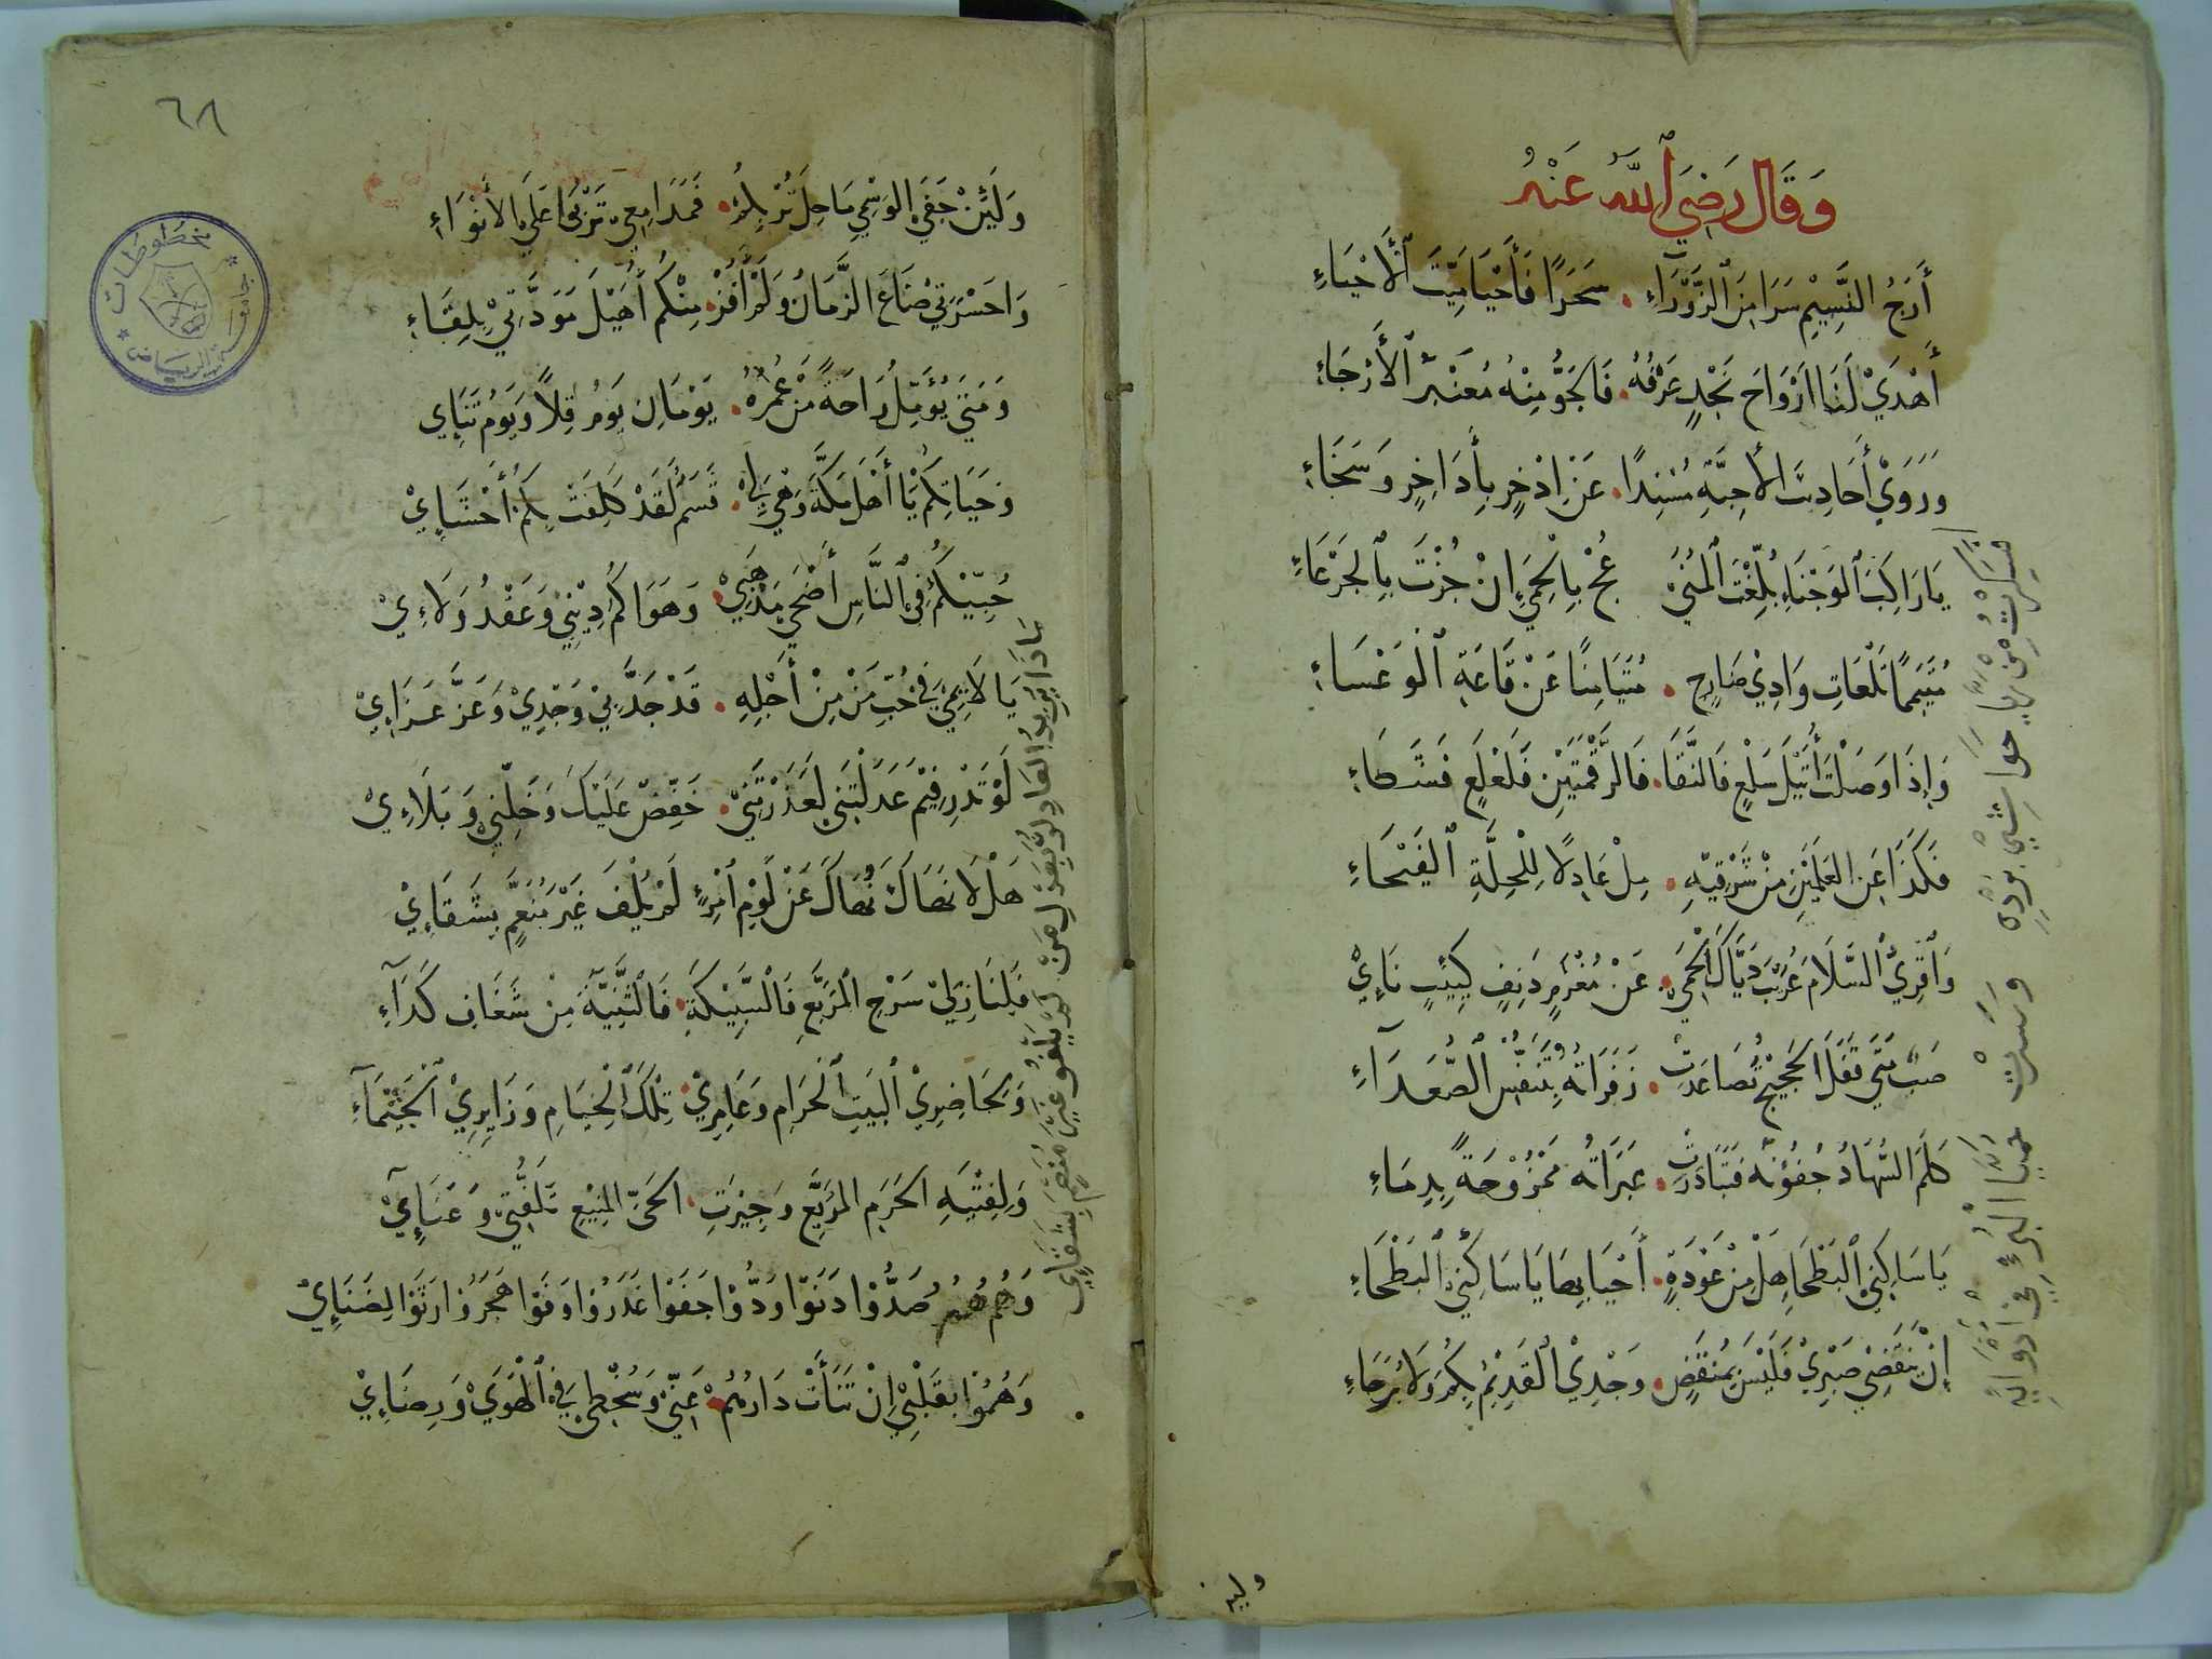 وَقَالَ رَضِيَ ٱللَّهُ عَنْهُ
أَرَجُ النَّسِيْمِ سَرَا مِنَ ٱلزَّوْرَآءِ . سَحَرًا فَأَحْيَا مَيِّتَ ٱلْأَحْيَاءِ
أَهْدَيْ لَنَا اَرْوَاحَ نَجْدٍ عَرْفُهُ . فَالجَوُّ مِنْهُ مُعَنْبَرُ ٱلْأَرْجَاءِ
وَرَوَيْ أَحَادِيثَ الأَحِبَّةِ مُسْنِدًا . عَنْ إِذْخِرٍ بِأَدَاخِرٍ وَسَخَاءِ
يَا رَاكِبَ ٱلوَجْنَاءِ بُلِّغْتَ ٱلمُنَيْ عُجْ بِالْحِمَيْ إِنْ جُزْتَ بِٱلجَرْعَاءِ
مُتَيَمِّمًا تَلَعَاتِ وَادِيْ ضَارِجٍ . مُتَيَامِنًا عَنْ قَاعَةِ ٱلْوَعْسَاءِ
وَإِذَا وَصَلْتَ أُثَيْلَ سَلْعٍ فَالنَّقَا . فَالرَّقْمَتَيْنِ فَلَعْلَعٍ فَشَظَاءِ
فَكَذَا عَنِ العَلَمَيْنِ مِنْ شَرْقِيِّهِ . مِلْ عَادِلًا لِلْحِلَّةِ ٱلفَيْحَاءِ
وَاَقْرِيْ السَّلَامَ عُرَيْبَ دَيَّاكَ ٱلْحِمَيْ . عَنْ مُغْرَمٍ دَنِفٍ كَئِيْبٍ نَائِيْ
صَبٍّ مَتَيْ قَفَلَ الحَجِيْجُ تَصَاعَدَتْ . زَفَرَاتُهُ بِتَنَفُّسِ ٱلصُّعَدَآءِ
كَلَمَ السُّهَادُ جُفُوْنَهُ فَتَبَادَرَتْ . عَبَرَاتُهُ مَمْزُوْجَةً بِدِمَاءِ
يَا سَاكِنِيْ ٱلبَطْحَا هَلْ مِنْ عَوْدَةٍ . أَحْيَا بِهَا يَا سَاكِنِيْ ٱلبَطْحَاءِ
إِنْ يَنْقَضِيْ صَبْرِيْ فَلَيْسَ بِمُنْقَضٍ . وَجْدِيْ ٱلقَدِيْمُ بِكُمْ وَلَا بُرَحَاءِ
ولين
٦٨
وَلَئِنْ جَفَيْ الوَسْمِيْ مَاحِلَ تُرْبِكُمْ . فَمَدَامِعِيْ تَرْبُيْ عَلَيْ الأَنْوَاءِ
وَاحَسْرَتِيْ ضَاعَ الزَّمَانُ وَلَمْ أَفُزْ . مِنْكُمْ أُهَيْلَ مَوَدَّتِيْ بِلِقَاءِ
وَمَتَيْ يُؤَمِّلُ رَاحَةً مَنْ عُمْرُهُ . يَوْمَانِ يَوْمُ قِلًا وَيَوْمُ تَنَايِ
وَحَيَاتِكُمْ يَا أَهْلَ مَكَّةَ وَهْيَ لِيْ . قَسَمٌ لَقَدْ كَلِفَتْ بِكُمْ أَحْشَايِيْ
حُبِّيْكُمْ فِيْ ٱلنَّاسِ أَضْحَيْ مَذْهَبِيْ . وَهَوَاكُمُ دِيْنِيْ وَعَقْدُ وَلَاءِيْ
يَا لَائِمِيْ فِيْ حُبِّ مَنْ مِنْ أَجْلِهِ . قَدْ جَدَّ بِيْ وَجْدِيْ وَعَزَّ عَزَايِيْ
لَوْ تَدْرِ فِيْمَ عَذَلْتَنِيْ لَعَذَرْتَنِيْ . خَفِّضْ عَلَيْكَ وَخَلِّنِيْ وَبَلَاءِيْ
هَلَّا نَهَاكَ نُهَاكَ عَنْ لَوْمِ اَمْرِءٍ لَمْ يُلْفَ غَيْرَ مُنَعَّمٍ بِشَقَايِيْ
فَلِنَازِلِيْ سَرْحِ المُرَبَّعِ فَالشَّبِيْكَةِ . فَالثَّنِيَّةِ مِنْ شِعَابِ كَدَآءِ
وَبِحَاضِرِيْ البَيْتِ ٱلْحَرَامِ وَعَامِرِيْ . تِلْكَ ٱلْخِيَامِ وَزَايِرِيْ ٱلْحَثْمَآءِ
وَلِفِتْيَةِ الحَرَمِ المُرَيَّعِ وَجِيْرَةِ . الحَيِّ المَنِيْعِ تَلَفُّتِيْ وَعَنَايِيْ
وَهُمُ هُمُ صَدُّوْا دَنَوْا وَدُّوْا جَفَوْا غَدَرُوْا وَفَوْا هَجَرُوْا رَثَوْا لِضَنَايِيْ
وَهُمُوْا بِقَلْبِيْ إِنْ تَنَأَتْ دَارُهُمْ . عَنِّيْ وَسُخْطِيْ فِيْ ٱلْهَوَيْ وَرِضَايِيْ
جامعة الرياض
مخطوطات